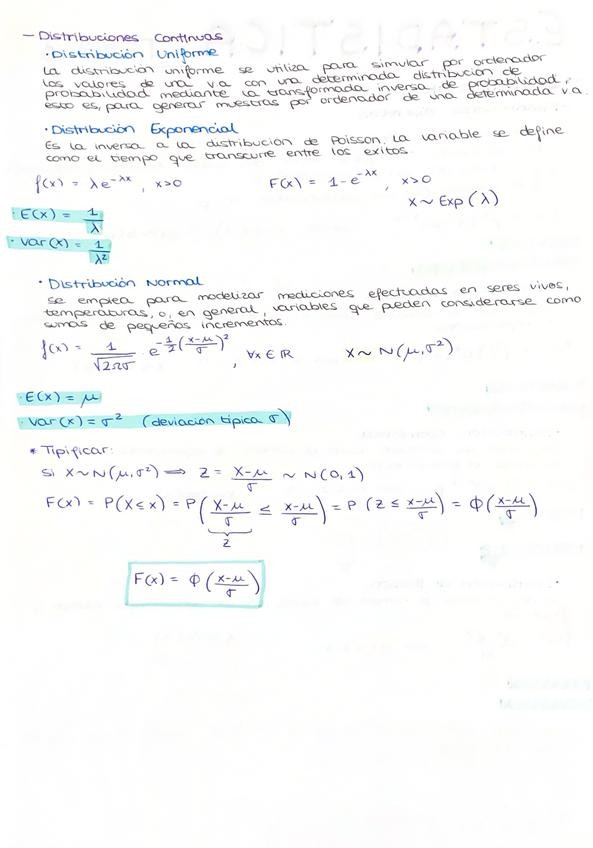 — Distribuciones Continuas
· Distribución Uniforme
La distribución uniforme se utiliza para simular por ordenador
los valores de una v.a con una determinada distribución de
probabilidad mediante la transformada inversa de probabilidad,
esto es, para generar muestras por ordenador de una determinada v.a.
· Distribución Exponencial
Es la inversa a la distribución de Poisson. La variable se define
como el tiempo que transcurre entre los éxitos.
f(x) = λe^{-λx}, x>0 F(x) = 1-e^{-λx}, x>0
x ~ Exp(λ)
· E(x) = 1/λ
· Var(x) = 1/λ²
· Distribución Normal
Se emplea para modelizar mediciones efectuadas en seres vivos,
temperaturas, o, en general, variables que pueden considerarse como
sumas de pequeños incrementos.
f(x) = 1/√(2πσ) · e^{-1/2 ((x-μ)/σ)²}, ∀x ∈ ℝ x ~ N(μ,σ²)
· E(x) = μ
· Var(x) = σ² (desviación típica σ)
* Tipificar:
Si X ~ N(μ,σ²) ⟹ Z = (X-μ)/σ ~ N(0,1)
F(x) = P(X ≤ x) = P((X-μ)/σ ≤ (x-μ)/σ) = P(Z ≤ (x-μ)/σ) = Φ((x-μ)/σ)
Z
F(x) = Φ((x-μ)/σ)